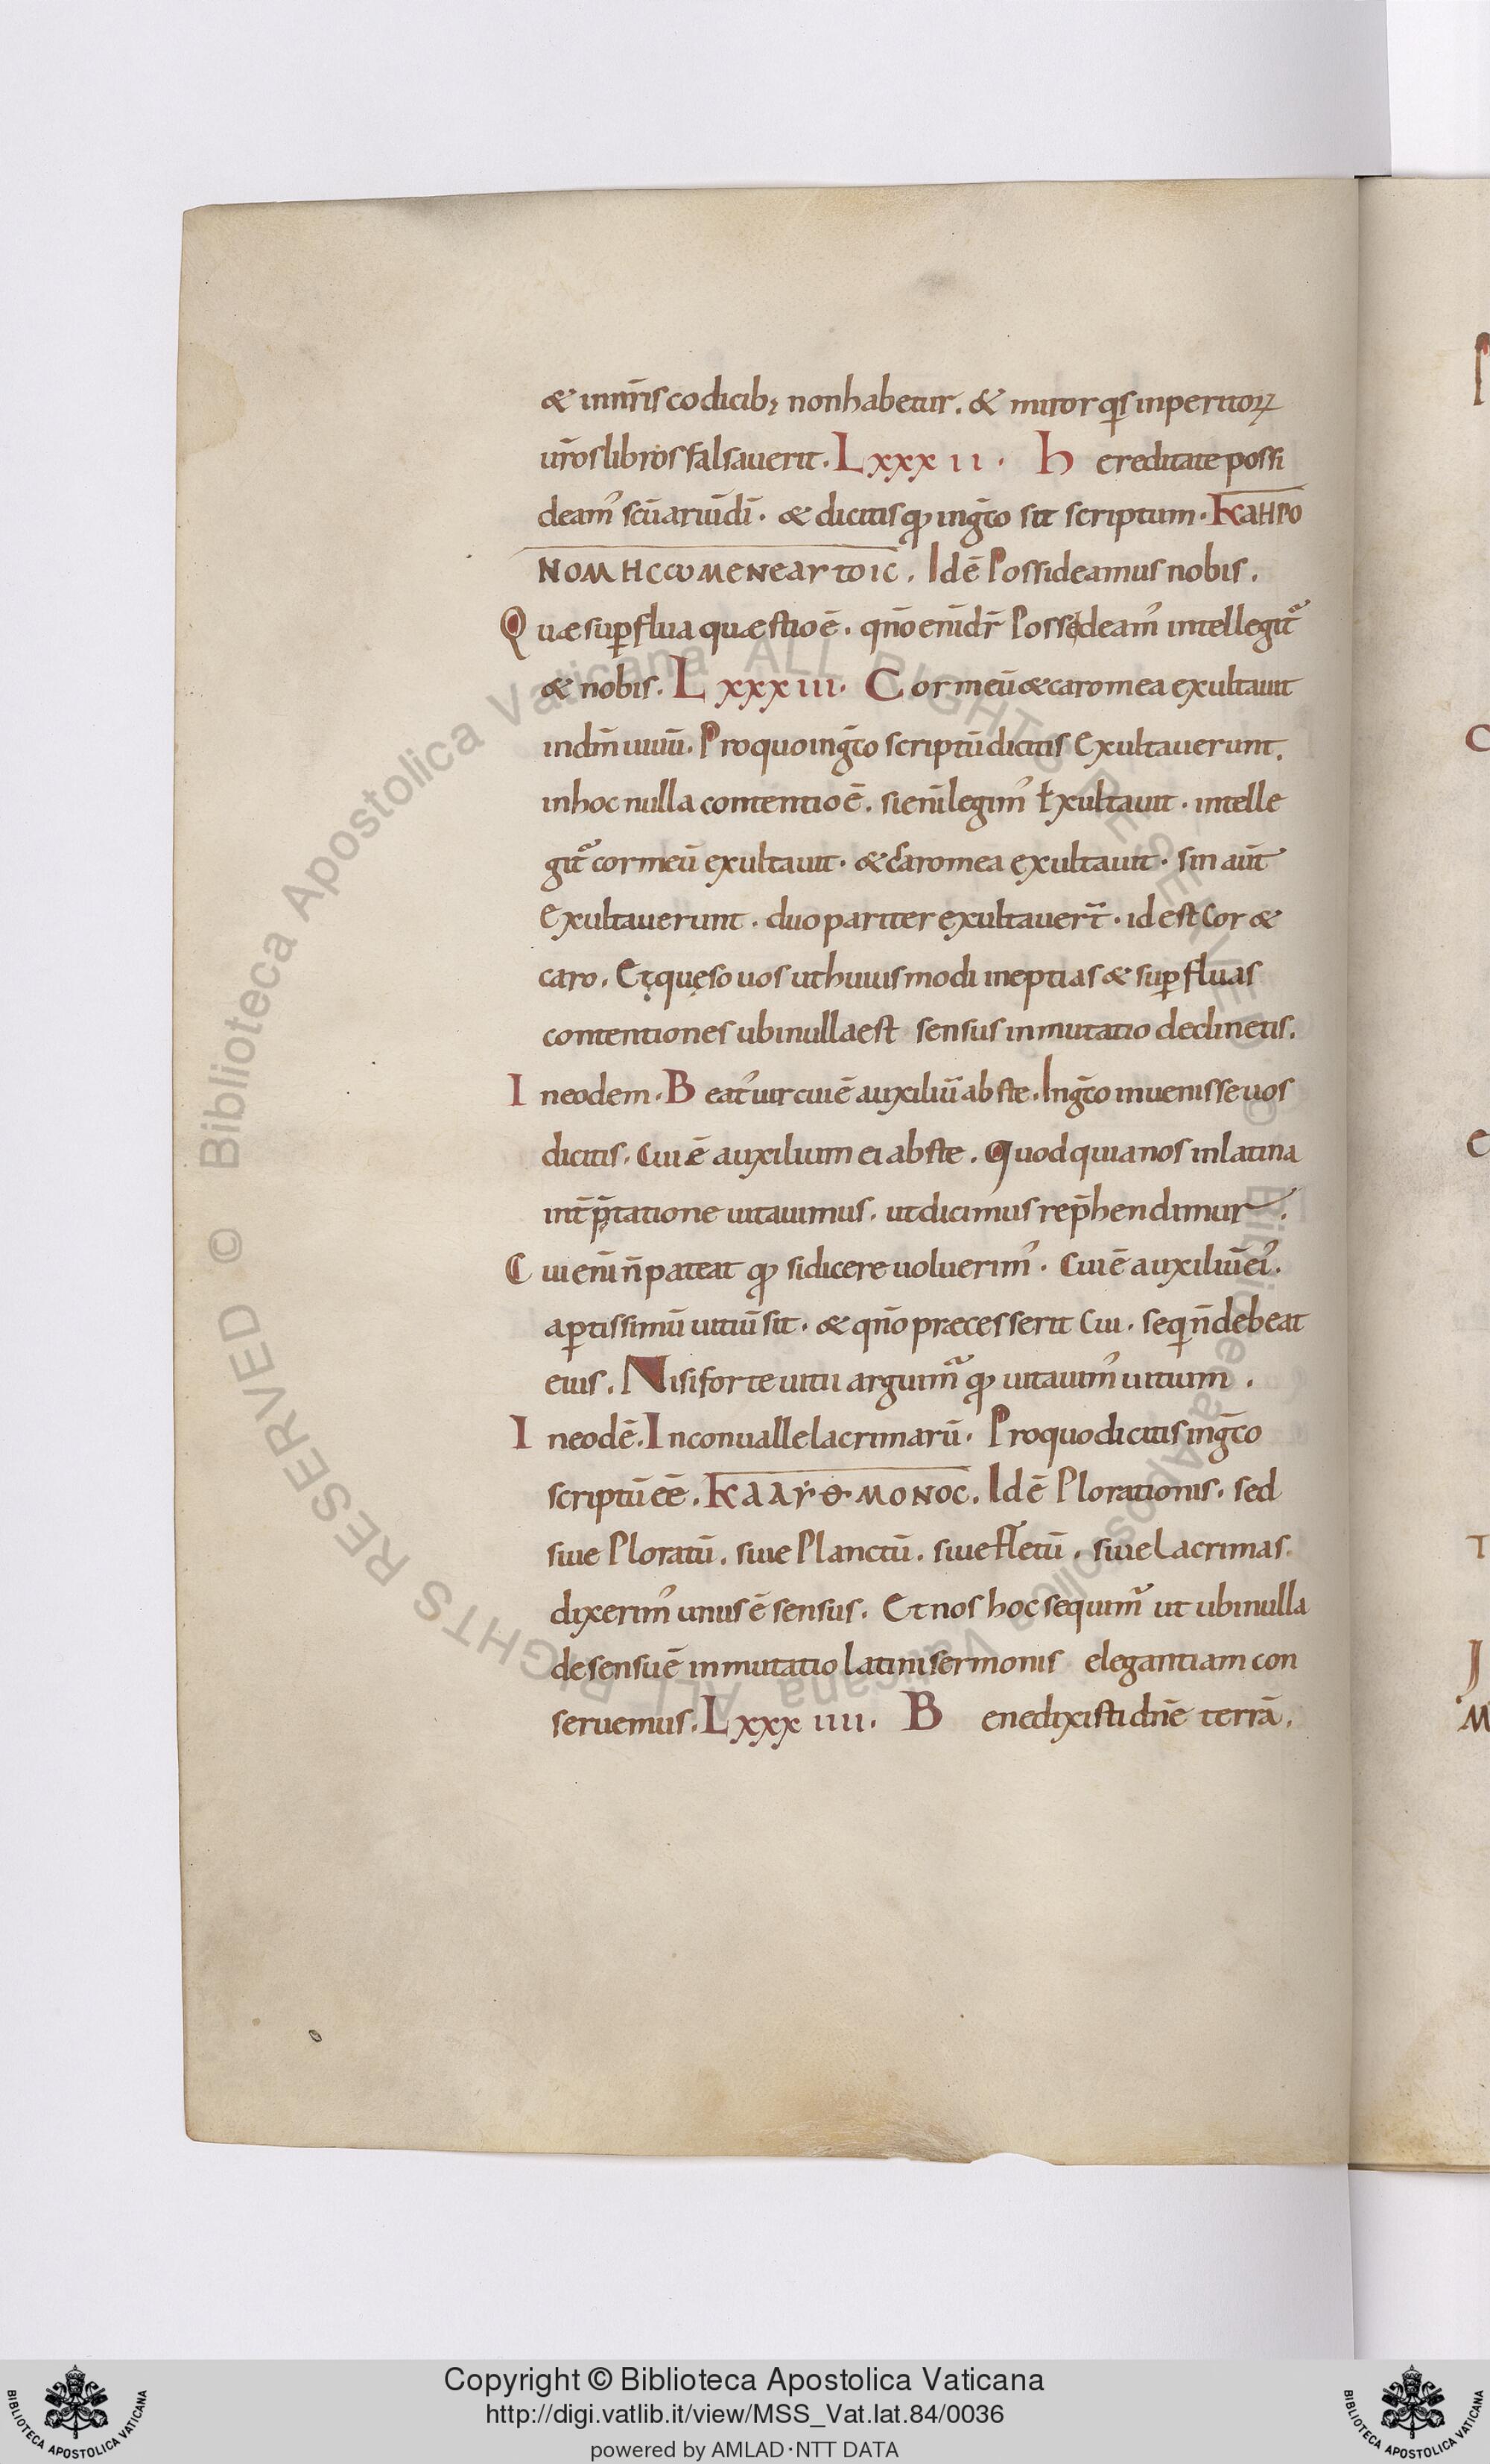 & in nr̄is codicib; non habetur. & miror q̄s inperitoꝝ
ur̄os libros falsauerit. Lxxxii. hereditate possi
deam᾽ scūariū dī. & dicitis qđ in gc̄o sit scriptum. ΚΑΗΡΟ
ΝΟΜΗϹϹΩΜΕΝΕΑΥΤΟΙϹ. Id ē Possideamus nobis.
Quæ supflua quæstio ē. qn̄o enī dr̄ Possedeam᾽ intellegit᷑
& nobis. Lxxxiii. Cor meū & caro mea exultauit
in dm̄ uiuū. Pro quo in gc̄o scriptū dicitis exultauerunt.
in hoc nulla contentio ē. si enī legim᾽ Exultauit. intelle
git᷑ cor meū exultauit. & caro mea exultauit. sin aūt
exultauerunt. duo pariter exultauer̄t. id est Cor &
caro. Et quęso uos ut huiusmodi ineptias & supfluas
contentiones ubi nulla est sensus inmutatio declinetis.
In eodem. Beat᾽ uir cui ē auxiliū abs te. In gc̄o inuenisse uos
dicitis. Cui ē auxilium ei abs te. Quod quia nos in latina
int̄p̄tatione uitauimus. ut dicimus rep̄hendimur.
Cui enī n̄ pateat qđ si dicere uoluerim᾽. Cui ē auxiliū ei᾽.
aptissimū uitiū sit. & qn̄o præcesserit Cui. seqi n̄ debeat
eius. Nisi forte uitii arguim᷑ qđ uitauim᾽ uitium.
In eodē. In conualle lacrimarū. Pro quo dicitis in gc̄o
scriptū eē. ΚΛΑΥΘΜΟΝΟϹ. Id ē Plorationis. sed
siue Ploratū. siue Planctū. siue fletū. siue Lacrimas.
dixerim᾽ unus ē sensus. Et nos hoc sequim᷑ ut ubi nulla
de sensu ē inmutatio latini sermonis elegantiam con
seruemus. Lxxxiiii. Benedixisti dn̄e terrā.
Copyright © Biblioteca Apostolica Vaticana
http://digi.vatlib.it/view/MSS_Vat.lat.84/0036
powered by AMLAD·NTT DATA
BIBLIOTECA APOSTOLICA VATICANA
BIBLIOTECA APOSTOLICA VATICANA
© Biblioteca Apostolica Vaticana ALL RIGHTS RESERVED © Biblioteca Apostolica Vaticana ALL RIGHTS RESERVED